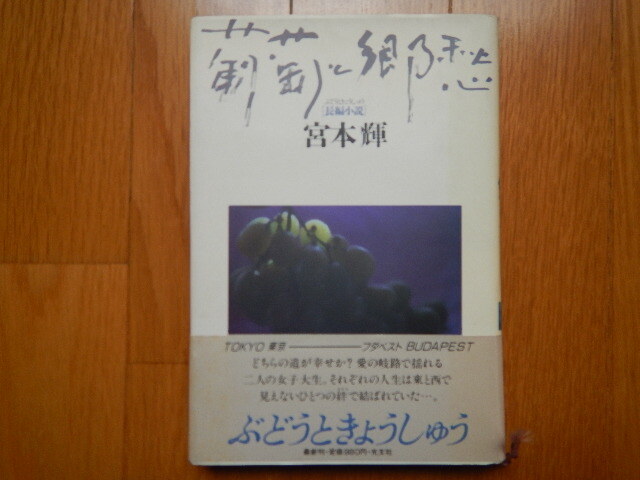 葡萄と郷愁
ぶどうときょうしゅう
[長編小説]
宮本輝
TOKYO 東京 ブダペスト BUDAPEST
どちらの道が幸せか?愛の岐路で揺れる
二人の女子大生。それぞれの人生は東と西で
見えないひとつの絆で結ばれていた…。
ぶどうときょうしゅう
最新刊・定価980円・光文社